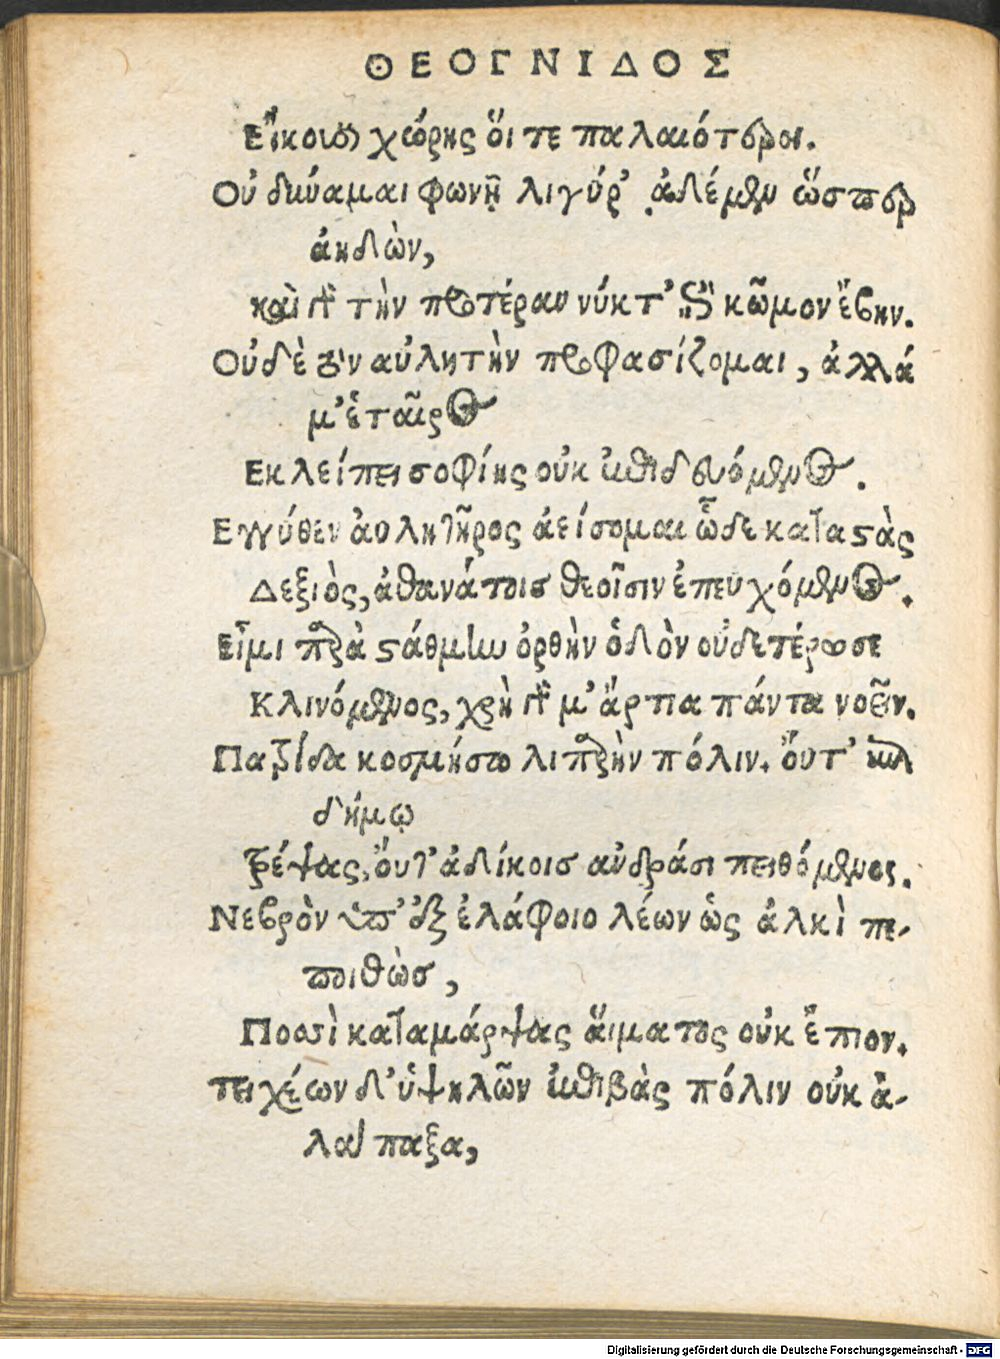 ΘΕΟΓΝΙΔΟΣ
Εἴκουσ χώρης ὅι τε παλαιότεροι.
Οὐ δύναμαι φωνῇ λιγύρ' ἀδέμεν ὥσπερ
ἀηδὼν,
καὶ γὰρ τὴν προτέραν νύκτ' ἐπὶ κῶμον ἔβην.
Οὐδὲ τὸν αὐλητὴν προφασίζομαι, ἀλλά
μ' ἑταῖρος
Εκλείπει σοφίης οὐκ ἐπιδευόμενος.
Εγγύθεν ἀυλητῆρος ἀείσομαι ὧδε καταστὰς
Δεξιὸς, ἀθανάτοισ θεοῖσιν ἐπευχόμενος.
Εἶμι παρὰ στάθμην ὀρθὴν ὁδὸν οὐδετέρωσε
Κλινόμενος, χρὴ γὰρ μ' ἄρτια πάντα νοεῖν.
Πατρίδα κοσμήσω λιπαρὴν πόλιν. ὄυτ' ἐπὶ
δήμῳ
τρέψας, ὄυτ' ἀδίκοισ ἀνδράσι πειθόμενος.
Νεβρὸν ὑπ' ἐξ ἐλάφοιο λέων ὡς ἀλκὶ πε-
ποιθὼσ,
Ποσσὶ καταμάρψας ἅιματος οὐκ ἔπιον.
τειχέων δ' ὑψηλῶν ἐπιβὰς πόλιν οὐκ ἀ-
λάπαξα,
Digitalisierung gefördert durch die Deutsche Forschungsgemeinschaft - DFG